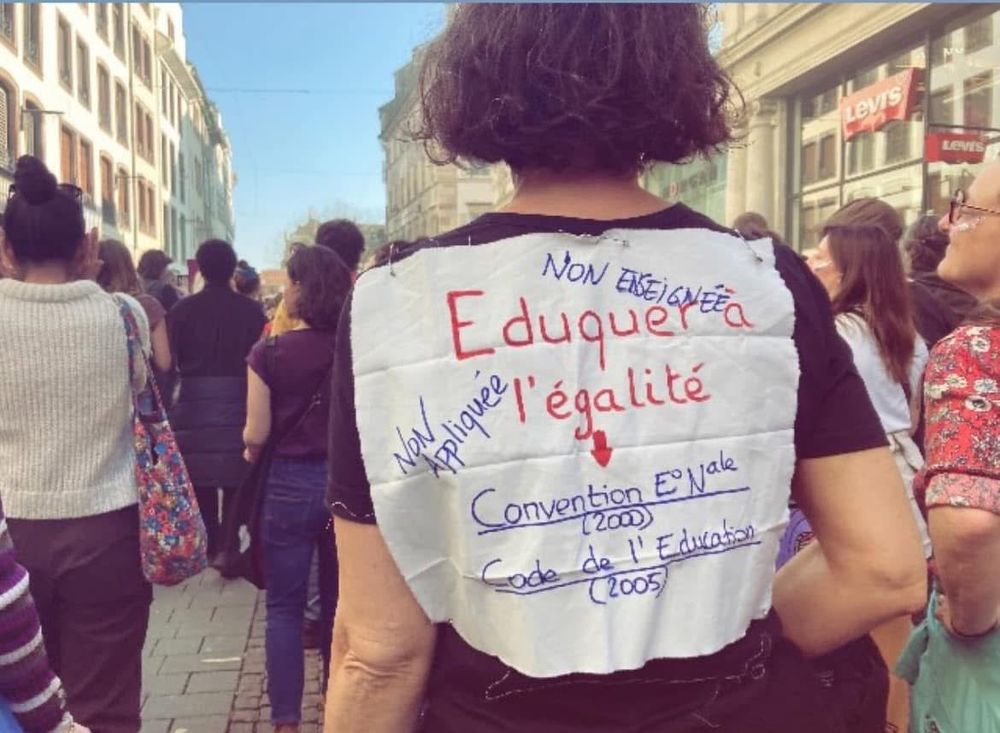 NON ENSEIGNÉE
Eduquer à
l'égalité
NON
Appliquée
Convention E° Nale
(2000)
Code de l'Education
(2005)
Levi's
Levi's